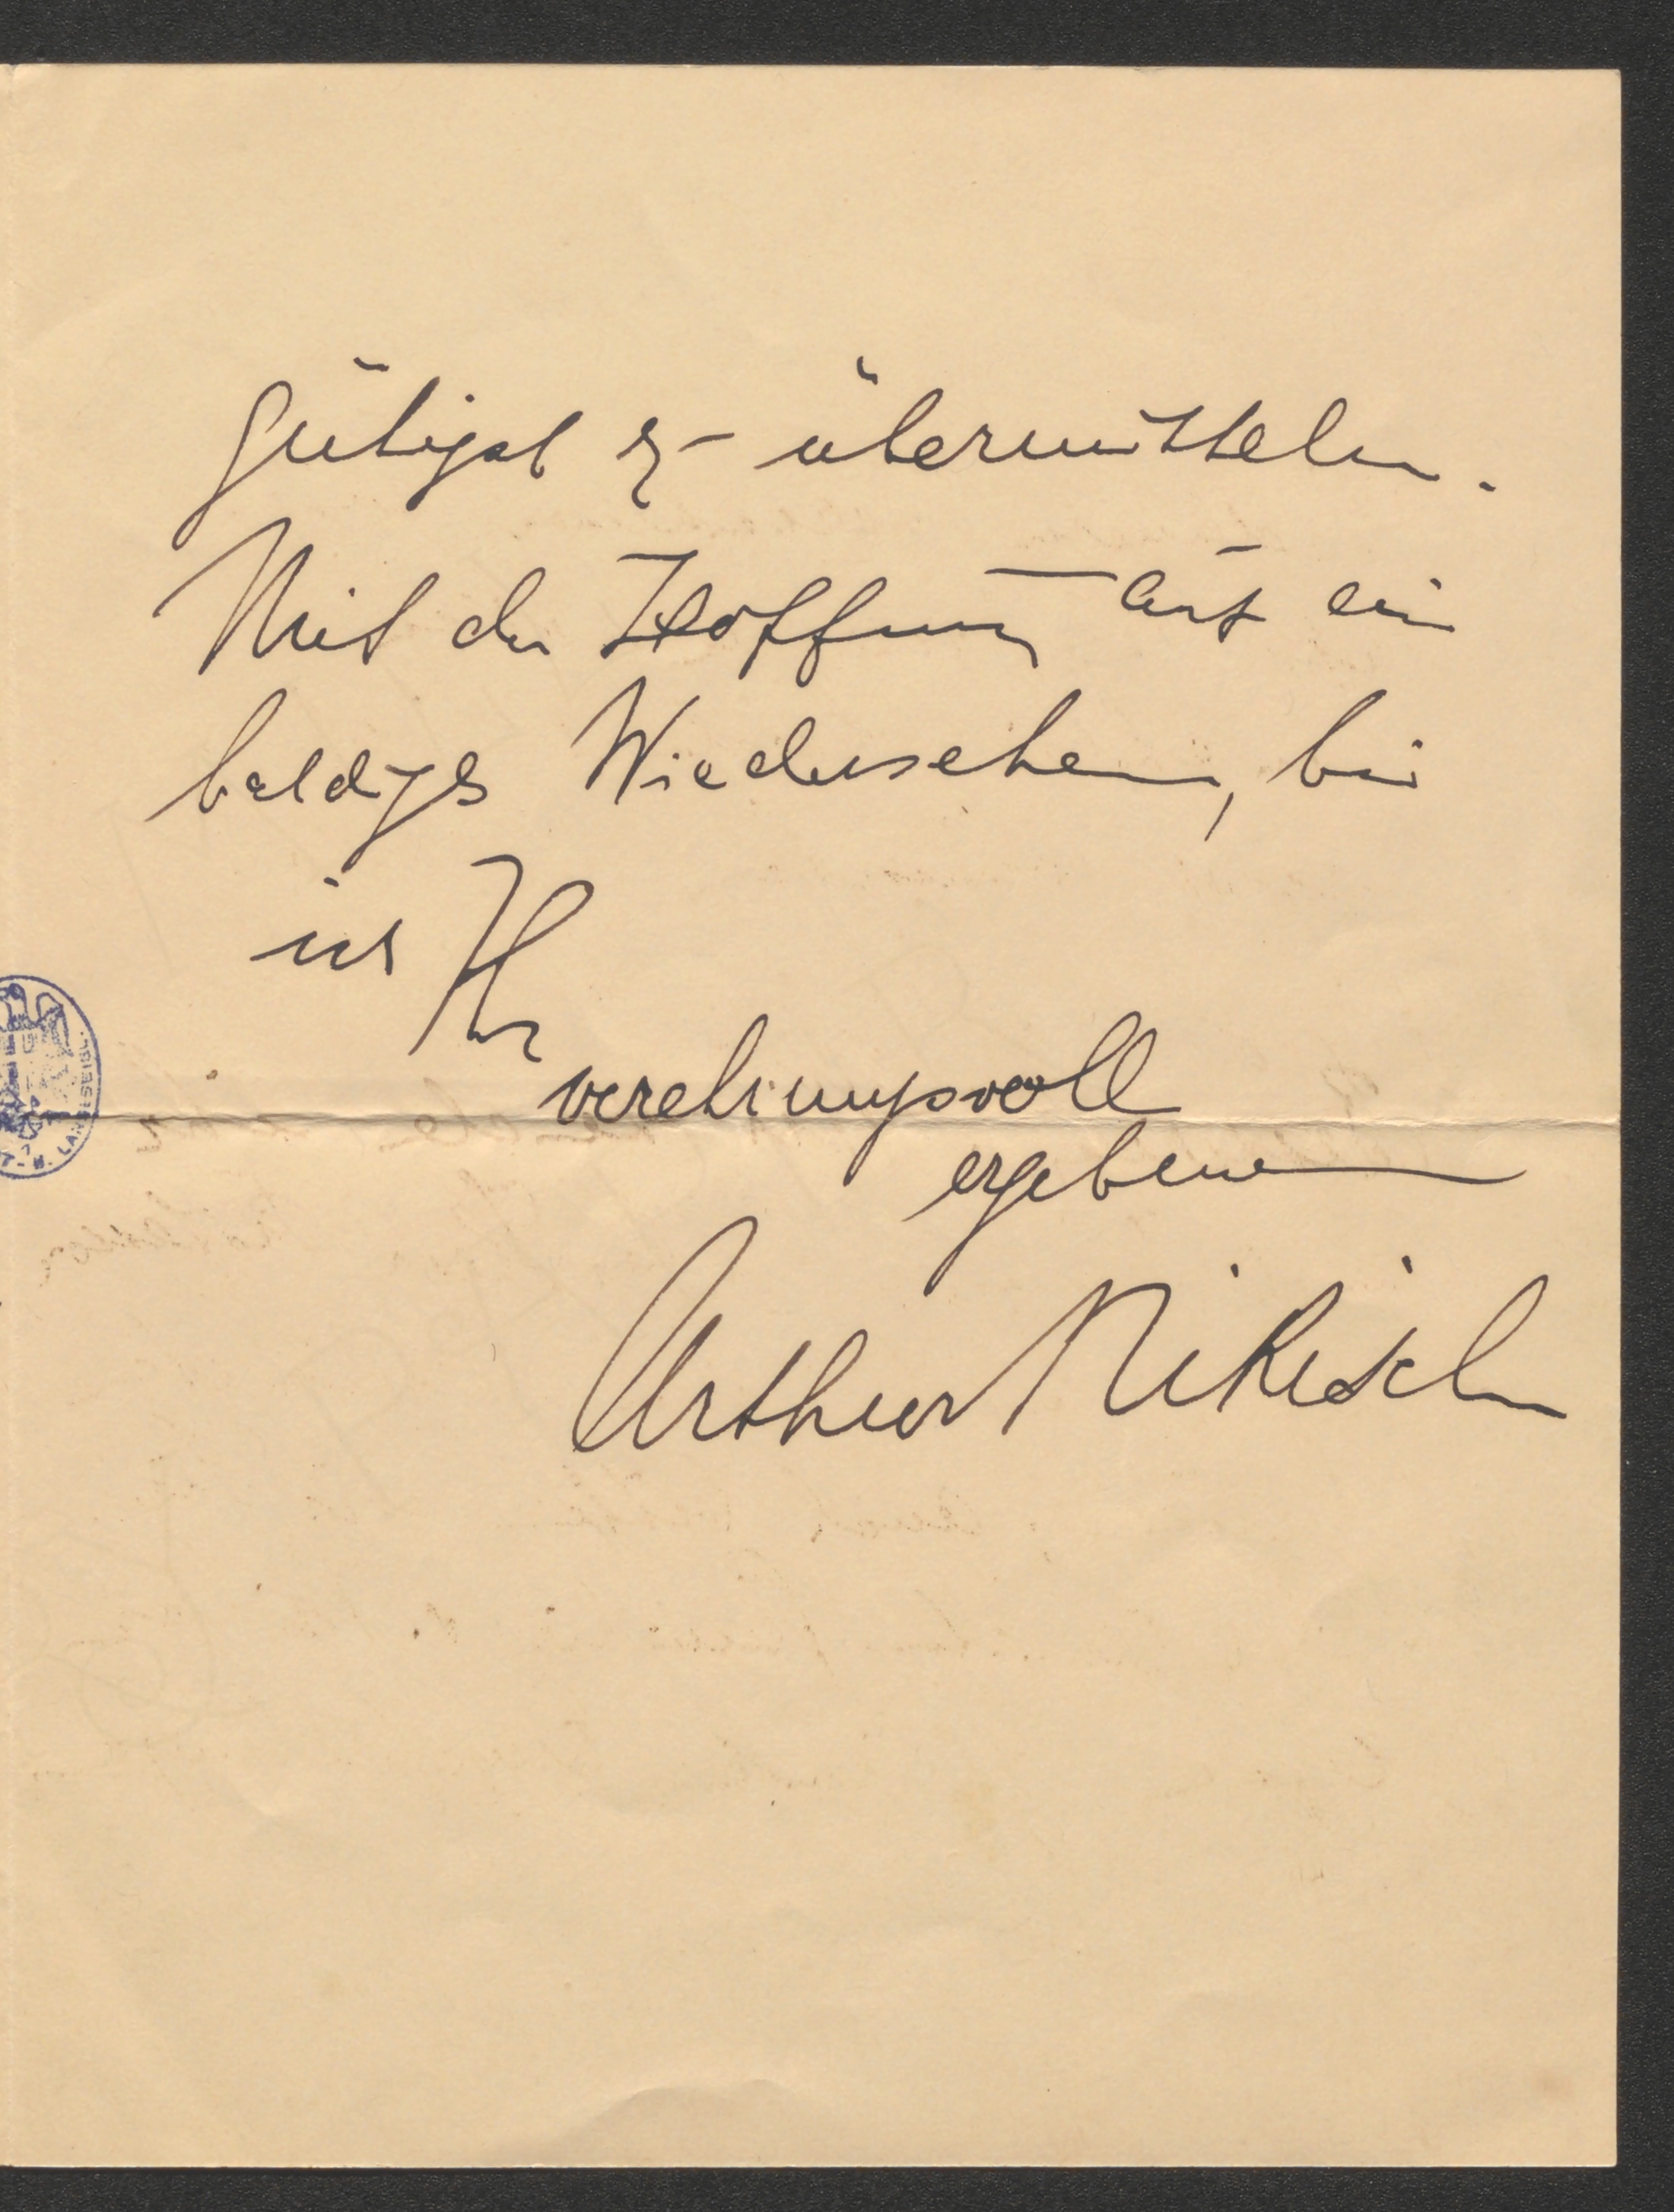 gütigst zu übermitteln.
Mit der Hoffnung auf ein
baldiges Wiedersehen, bin
ich Ihr
verehrungsvoll
ergebener
Arthur Nikisch
LANDESBIBL.